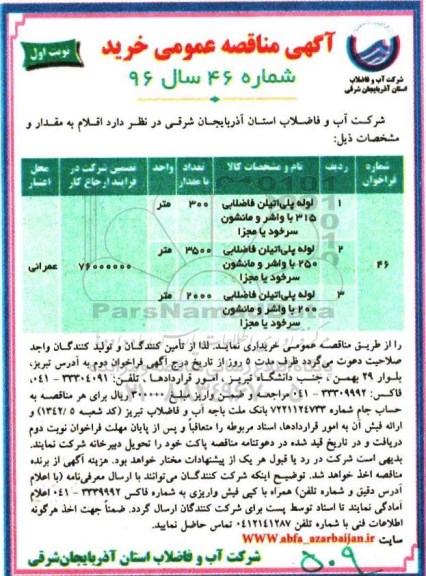 آگهی مناقصه عمومی خرید
نوبت اول
شماره ۴۶ سال ۹۶
شرکت آب و فاضلاب
استان آذربایجان شرقی
شرکت آب و فاضلاب استان آذربایجان شرقی در نظر دارد اقلام به مقدار و
مشخصات ذیل:
شماره فراخوان ردیف نام و مشخصات کالا تعداد یا مقدار واحد تضمین شرکت در فرایند ارجاع کار محل اعتبار
۱ لوله پلی‌اتیلن فاضلابی ۳۰۰ متر
۳۱۵ با واشر و مانشون
سرخود یا مجزا
۲ لوله پلی‌اتیلن فاضلابی ۳۵۰۰ متر
۴۶ ۲۵۰ با واشر و مانشون ۷۶۰۰۰۰۰۰ عمرانی
سرخود یا مجزا
۳ لوله پلی‌اتیلن فاضلابی ۲۰۰۰ متر
۲۰۰ با واشر و مانشون
سرخود یا مجزا
ParsNamadData
را از طریق مناقصه عمومی خریداری نمایند. لذا از تأمین کنندگان و تولید کنندگان واجد
صلاحیت دعوت می‌گردد ظرف مدت ۵ روز از تاریخ درج آگهی فراخوان دوم به آدرس تبریز،
بلوار ۲۹ بهمن، جنب دانشگاه تبریز، امور قراردادها، تلفن: ۳۳۳۰۴۰۹۱ - ۰۴۱،
فاکس: ۳۳۳۰۹۹۹۲ - ۰۴۱ مراجعه و ضمن واریز مبلغ ۳۰۰۰۰۰ ریال برای هر مناقصه به
حساب جام شماره ۷۲۲۱۱۲۴۷۳۳ بانک ملت باجه آب و فاضلاب تبریز (کد شعبه ۱۳۴۲/۵) و
ارائه فیش آن به امور قراردادها، اسناد مربوطه را متعاقباً و پس از پایان مهلت فراخوان نوبت دوم
دریافت و در تاریخ قید شده در دعوتنامه مناقصه پاکت خود را تحویل دبیرخانه شرکت نمایند.
بدیهی است شرکت در رد یا قبول هر یک از پیشنهادات مختار خواهد بود. هزینه آگهی از برنده
مناقصه اخذ خواهد شد. توضیح اینکه شرکت کنندگان می‌توانند با ارسال معرفی‌نامه (با اعلام
آدرس دقیق و شماره تلفن) همراه با کپی فیش واریزی به شماره فاکس ۳۳۳۰۹۹۹۲ - ۰۴۱ اعلام
آمادگی نمایند تا اسناد توسط پست برای شرکت کنندگان ارسال گردد. ضمناً جهت اخذ هرگونه
اطلاعات فنی با شماره تلفن ۰۴۱۲۱۴۱۲۸۷ تماس حاصل نمایید.
سایت WWW.abfa_azarbaijan.ir
شرکت آب و فاضلاب استان آذربایجان‌شرقی
۵۰۹